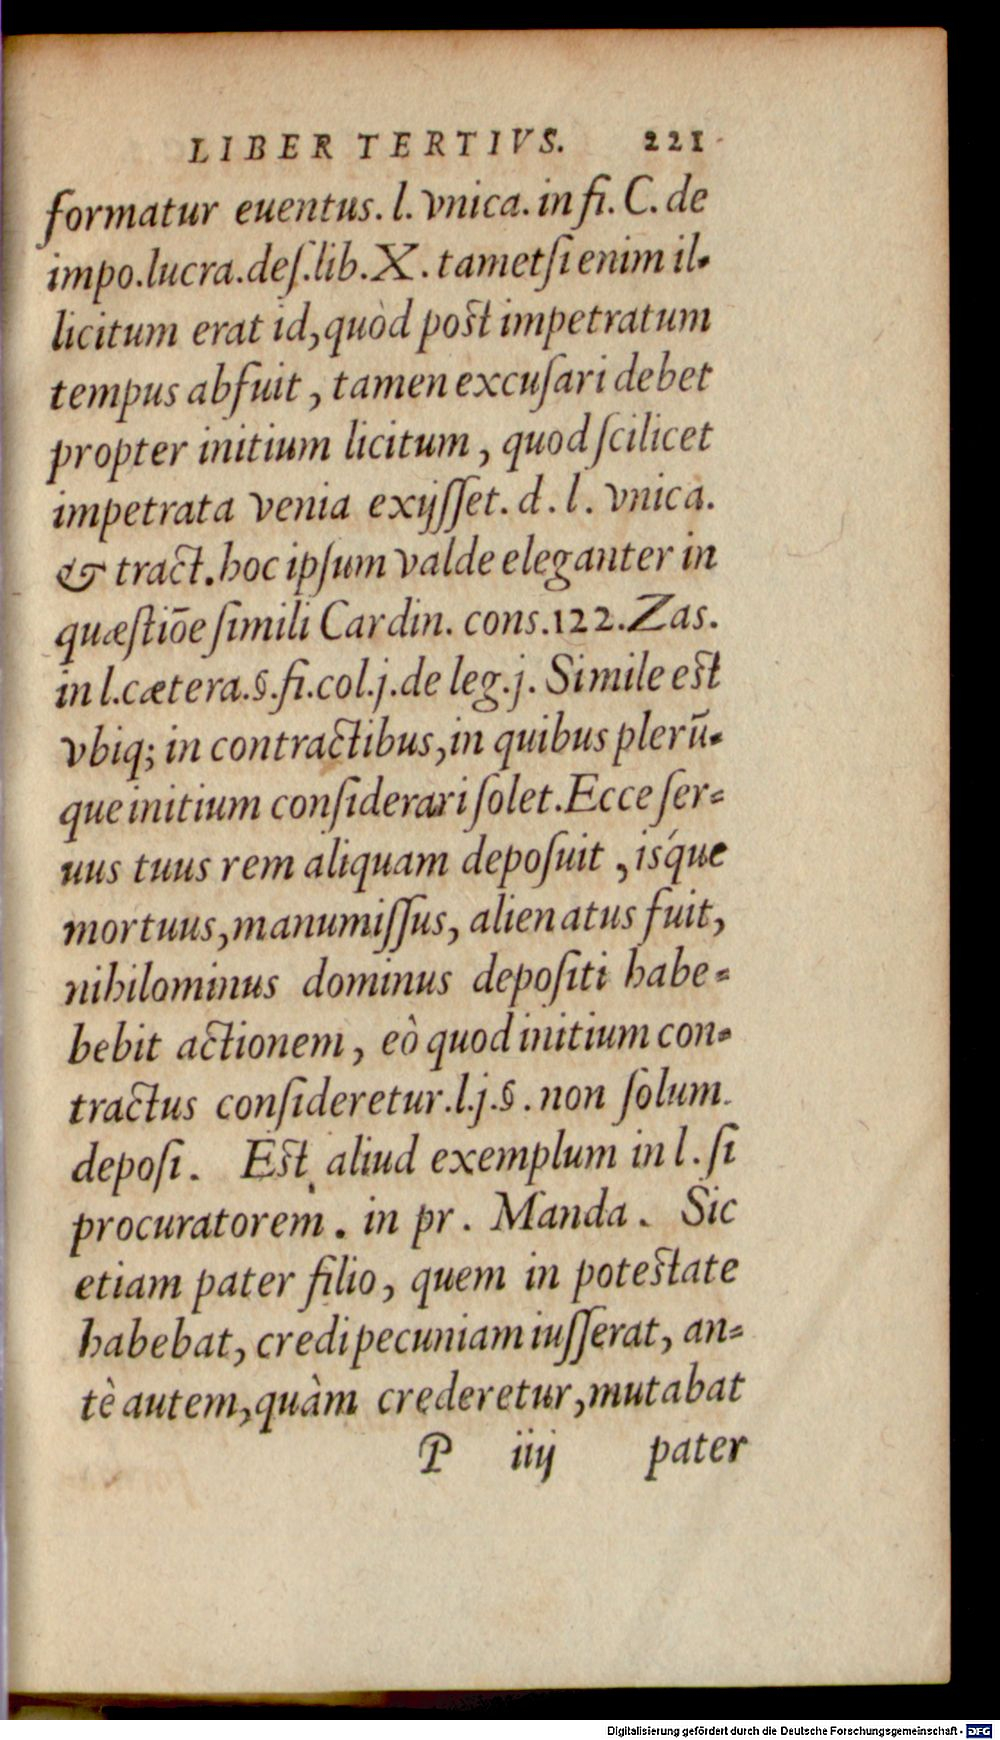 LIBER TERTIVS. 221
formatur euentus. l. vnica. in fi. C. de
impo.lucra.deſ.lib.X. tametſi enim il-
licitum erat id, quòd poſt impetratum
tempus abfuit, tamen excuſari debet
propter initium licitum, quod ſcilicet
impetrata venia exijſſet. d. l. vnica.
& tract. hoc ipſum valde eleganter in
quæſtiōe ſimili Cardin. cons.122. Zas.
in l.cætera.§.fi.col.j.de leg.j. Simile eſt
vbiq; in contractibus, in quibus plerū-
que initium conſiderari ſolet. Ecce ſer-
uus tuus rem aliquam depoſuit, iſq́ue
mortuus, manumiſſus, alienatus fuit,
nihilominus dominus depoſiti habe-
bebit actionem, eò quod initium con-
tractus conſideretur.l.j.§. non ſolum.
depoſi. Eſt aliud exemplum in l. ſi
procuratorem. in pr. Manda. Sic
etiam pater filio, quem in poteſtate
habebat, credi pecuniam iuſſerat, an-
tè autem, quàm crederetur, mutabat
P iiij pater
Digitalisierung gefördert durch die Deutsche Forschungsgemeinschaft - DFG